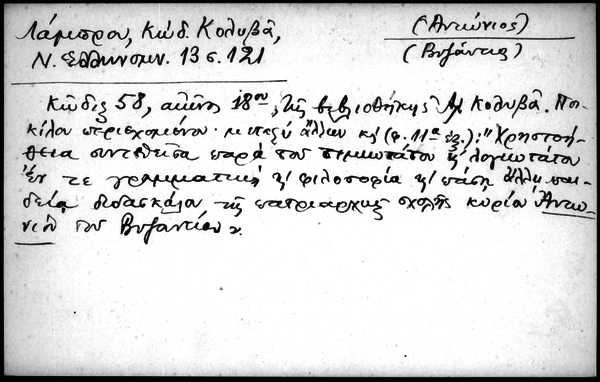 Λάμπρου, Κώδ. Κολυβᾶ,
Ν. Ἑλληνομν. 13 σ. 121
(Ἀντώνιος)
(Βυζάντιος)
Κῶδιξ 58, αἰῶνος 18ου, τῆς βιβλιοθήκης Μ Κολυβᾶ. Ποι-
κίλου περιεχομένου· μεταξὺ ἄλλων κ (φ. 11α ἑξ.): "Χρηστοή-
θεια συντεθεῖσα παρὰ τοῦ τιμιωτάτου κ λογιωτάτου
ἔν τε γραμματικῇ κ φιλοσοφίᾳ κ πάσῃ ἄλλῃ παι-
δείᾳ διδασκάλου τῆς πατριαρχικῆς σχολῆς κυρίου Ἀντω-
νίου τοῦ Βυζαντίου".